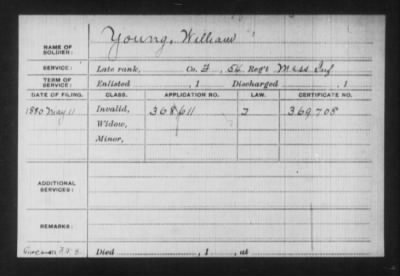 Young, William
NAME OF SOLDIER:
SERVICE: Late rank, Co. F, 54 Reg't Mass Inf.
TERM OF SERVICE: Enlisted , 1 Discharged , 1
DATE OF FILING. CLASS. APPLICATION NO. LAW. CERTIFICATE NO.
1880 May 11 Invalid, 368611 369.708
Widow,
Minor,
ADDITIONAL SERVICES:
REMARKS:
Died , 1 , at